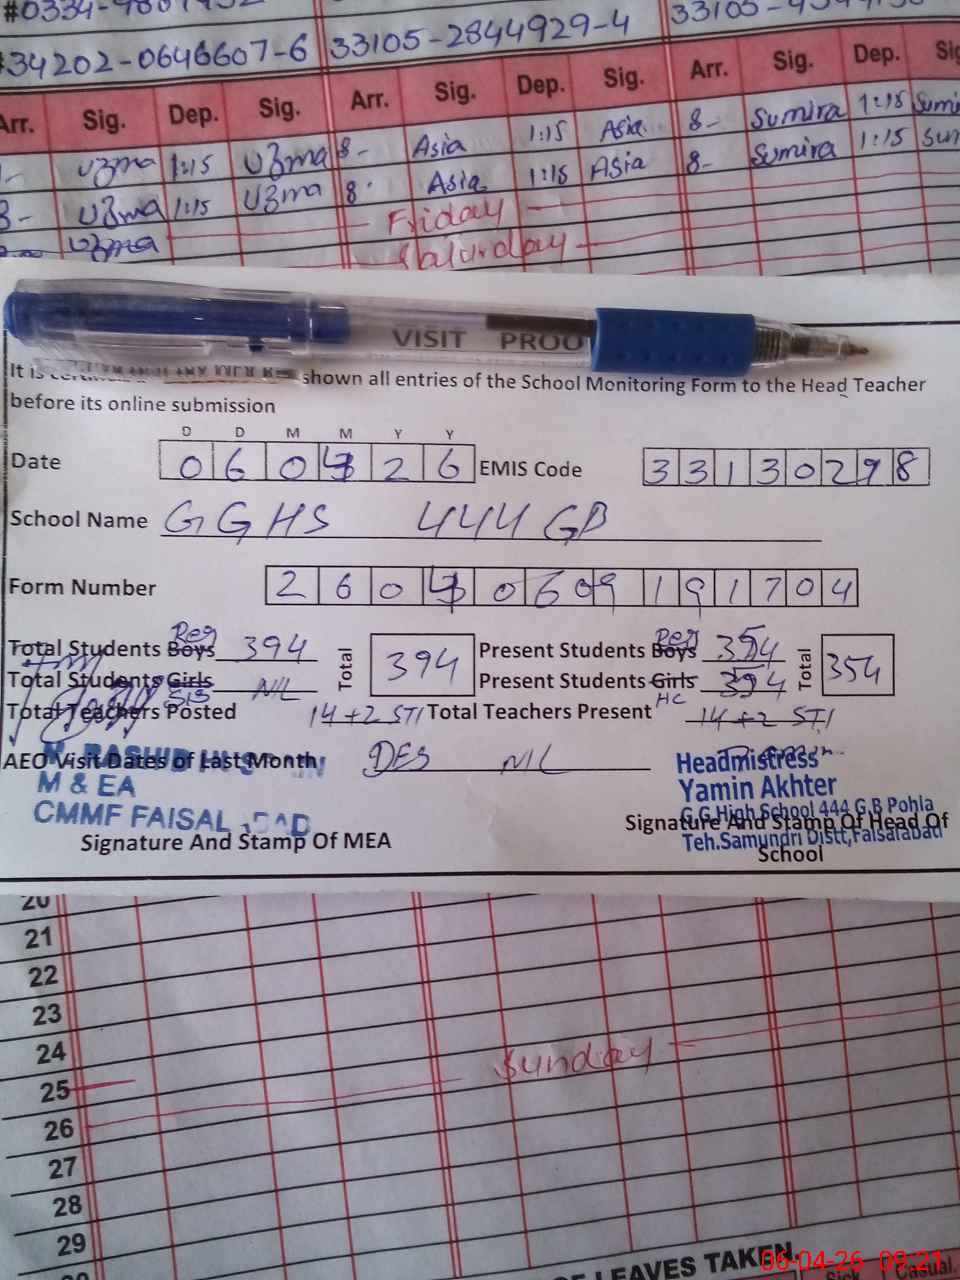 34202-0646607-6 33105-2844929-4
Arr. Sig. Dep. Sig. Arr. Sig. Dep. Sig. Arr. Sig. Dep. Sig
Uzma 1:15 Uzma 8- Asia 1:15 Asia 8- Sumira 1:15 Sumi
Uzma 1:15 Uzma 8- Asia 1:15 Asia 8- Sumira 1:15 Sum
Uzma Friday
Saturday
VISIT PROO
It is shown all entries of the School Monitoring Form to the Head Teacher
before its online submission
D D M M Y Y
Date 06 04 26 EMIS Code 33130298
School Name GGHS 444 GB
Form Number 26040609191704
Total Students Boys Reg 394 Total 394 Present Students Boys Reg 354 Total 354
Total Students Girls NIL Present Students Girls HC 354
Total Teachers Posted 14+2 STI Total Teachers Present 14+2 STI
AEO Visit Dates of Last Month DES NIL
Headmistress
M & EA
Yamin Akhter
CMMF FAISALABAD
G.G.High School 444 G.B Pohla
Signature And Stamp Of MEA
Signature And Stamp Of Head Of
Teh.Samundri Distt,Faisalabad
School
20
21
22
23
24
Sunday
25
26
27
28
29
LEAVES TAKEN.
Casual.
06-04-26 09:21